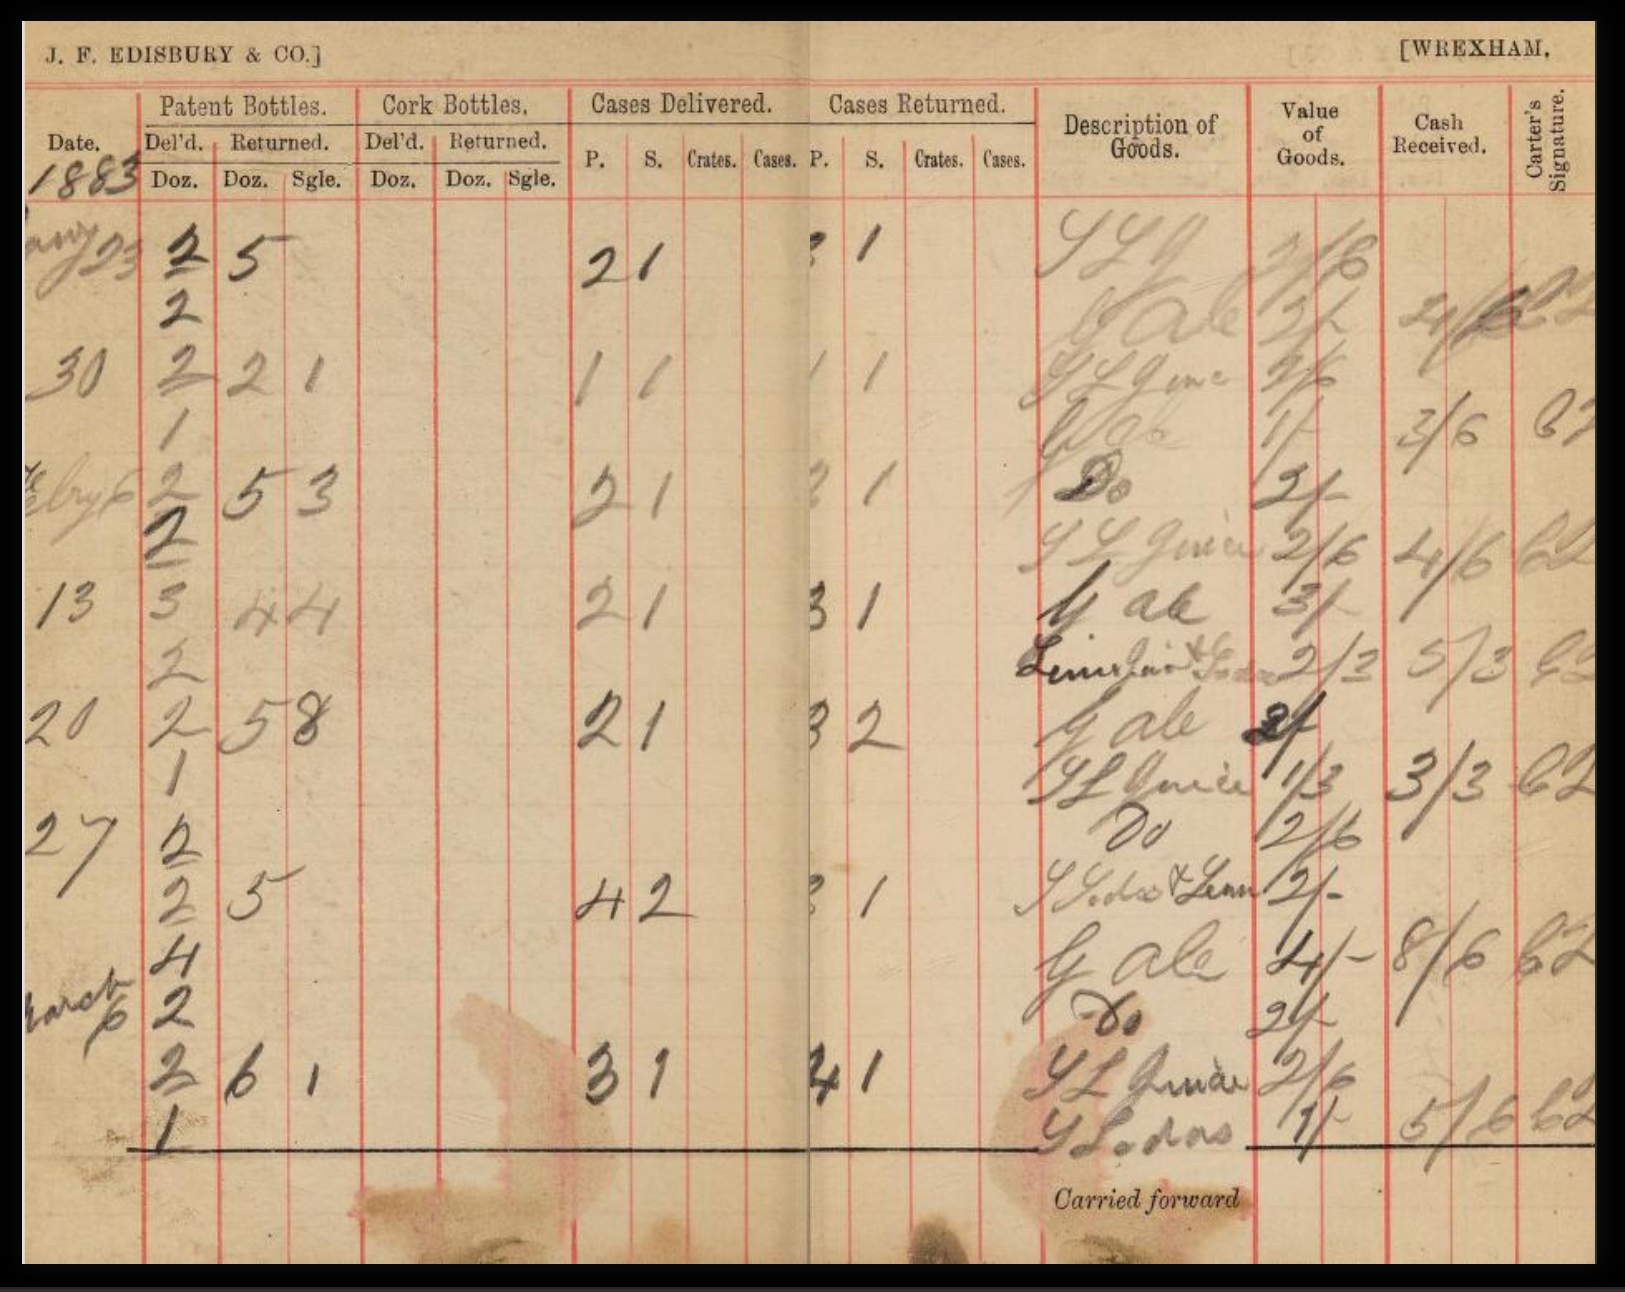 J. F. EDISBURY & CO.] [WREXHAM,
Patent Bottles. Cork Bottles. Cases Delivered. Cases Returned. Description of Goods. Value of Goods. Cash Received. Carter's Signature.
Date. Del'd. Returned. Del'd. Returned. P. S. Crates. Cases. P. S. Crates. Cases.
1883 Doz. Doz. Sgle. Doz. Doz. Sgle.
23 2 5 2 1 1 2/6
2 G ale 2/- 4/6
30 2 2 1 1 1 1 1 2/6
1 G ale 1/- 3/6
6 2 5 3 2 1 1 Do 2/-
2 2/6 4/6
13 3 4 4 2 1 3 1 G ale 3/-
2 2/3 5/3
20 2 5 8 2 1 3 2 G ale 2/-
1 1/3 3/3
27 2 Do 2/6
2 5 4 2 1 2/-
4 G ale 4/- 8/6
March 6 2 Do 2/-
2 6 1 3 1 4 1 2/6
1 1/- 5/6
Carried forward